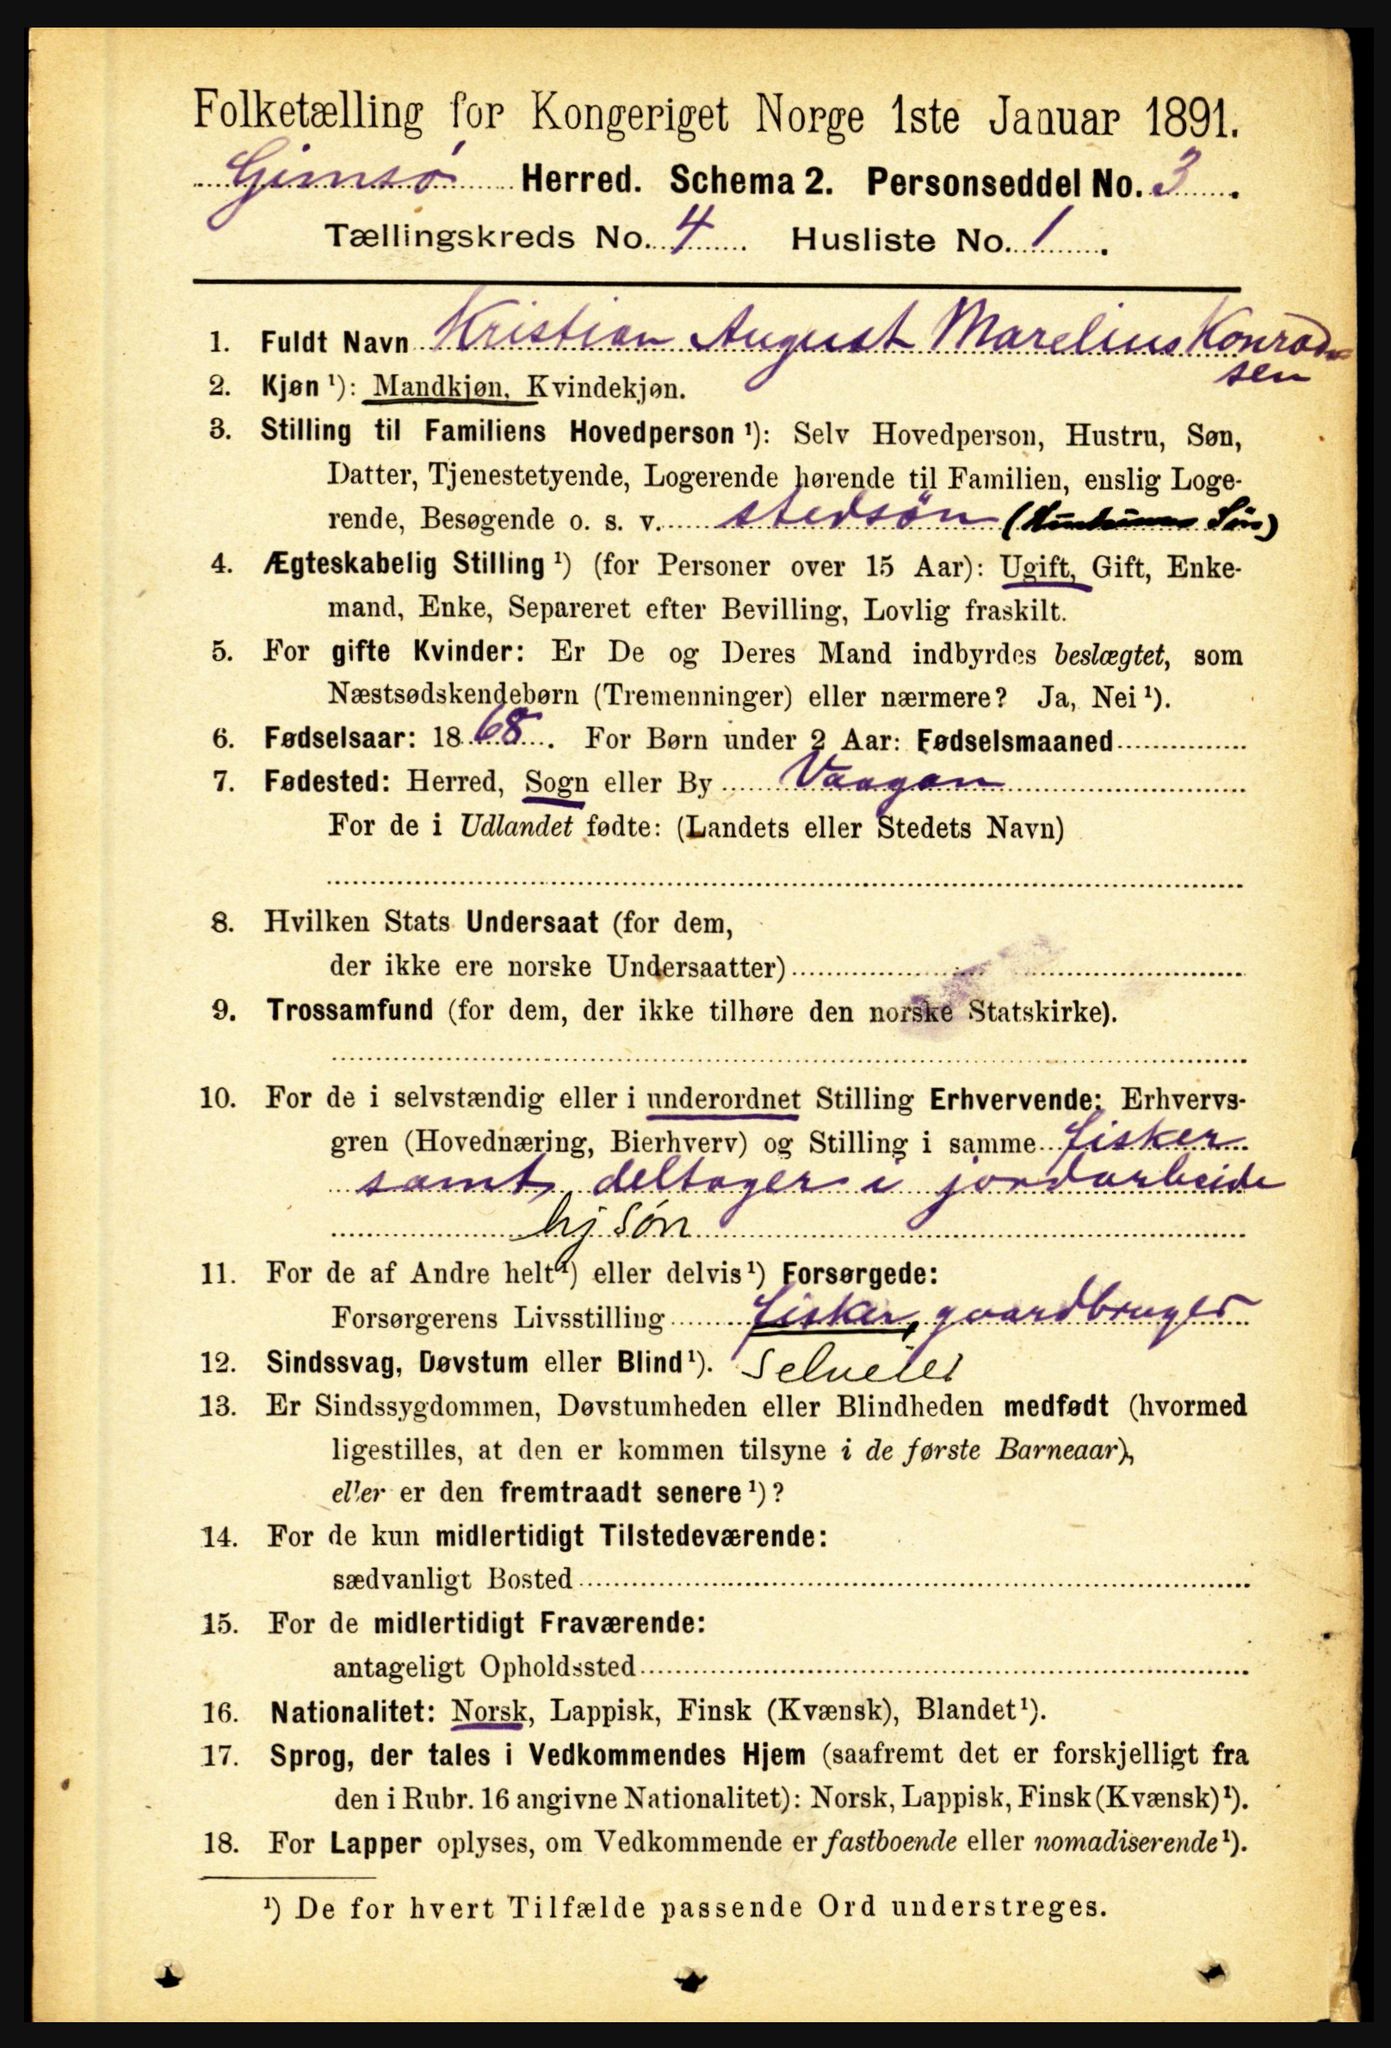 Folketælling for Kongeriget Norge 1ste Januar 1891.
Gimsø Herred. Schema 2. Personseddel No. 3.
Tællingskreds No. 4. Husliste No. 1.
1. Fuldt Navn Kristian August Marelius Konrad-
sen
2. Kjøn ¹): Mandkjøn, Kvindekjøn.
3. Stilling til Familiens Hovedperson ¹): Selv Hovedperson, Hustru, Søn,
Datter, Tjenestetyende, Logerende hørende til Familien, enslig Loge-
rende, Besøgende o. s. v. stedsøn ( Søn)
4. Ægteskabelig Stilling ¹) (for Personer over 15 Aar): Ugift, Gift, Enke-
mand, Enke, Separeret efter Bevilling, Lovlig fraskilt.
5. For gifte Kvinder: Er De og Deres Mand indbyrdes beslægtet, som
Næstsødskendebørn (Tremenninger) eller nærmere? Ja, Nei ¹).
6. Fødselsaar: 1868. For Børn under 2 Aar: Fødselsmaaned
7. Fødested: Herred, Sogn eller By Vaagan
For de i Udlandet fødte: (Landets eller Stedets Navn)
8. Hvilken Stats Undersaat (for dem,
der ikke ere norske Undersaatter)
9. Trossamfund (for dem, der ikke tilhøre den norske Statskirke).
10. For de i selvstændig eller i underordnet Stilling Erhvervende: Erhvervs-
gren (Hovednæring, Bierhverv) og Stilling i samme fisker
samt deltager i jordarbeide
hj søn
11. For de af Andre helt ¹) eller delvis ¹) Forsørgede:
Forsørgerens Livsstilling fisker, gaardbruger
12. Sindssvag, Døvstum eller Blind ¹). Selveier
13. Er Sindssygdommen, Døvstumheden eller Blindheden medfødt (hvormed
ligestilles, at den er kommen tilsyne i de første Barneaar),
eller er den fremtraadt senere ¹)?
14. For de kun midlertidigt Tilstedeværende:
sædvanligt Bosted
15. For de midlertidigt Fraværende:
antageligt Opholdssted
16. Nationalitet: Norsk, Lappisk, Finsk (Kvænsk), Blandet ¹).
17. Sprog, der tales i Vedkommendes Hjem (saafremt det er forskjelligt fra
den i Rubr. 16 angivne Nationalitet): Norsk, Lappisk, Finsk (Kvænsk) ¹).
18. For Lapper oplyses, om Vedkommende er fastboende eller nomadiserende ¹).
¹) De for hvert Tilfælde passende Ord understreges.